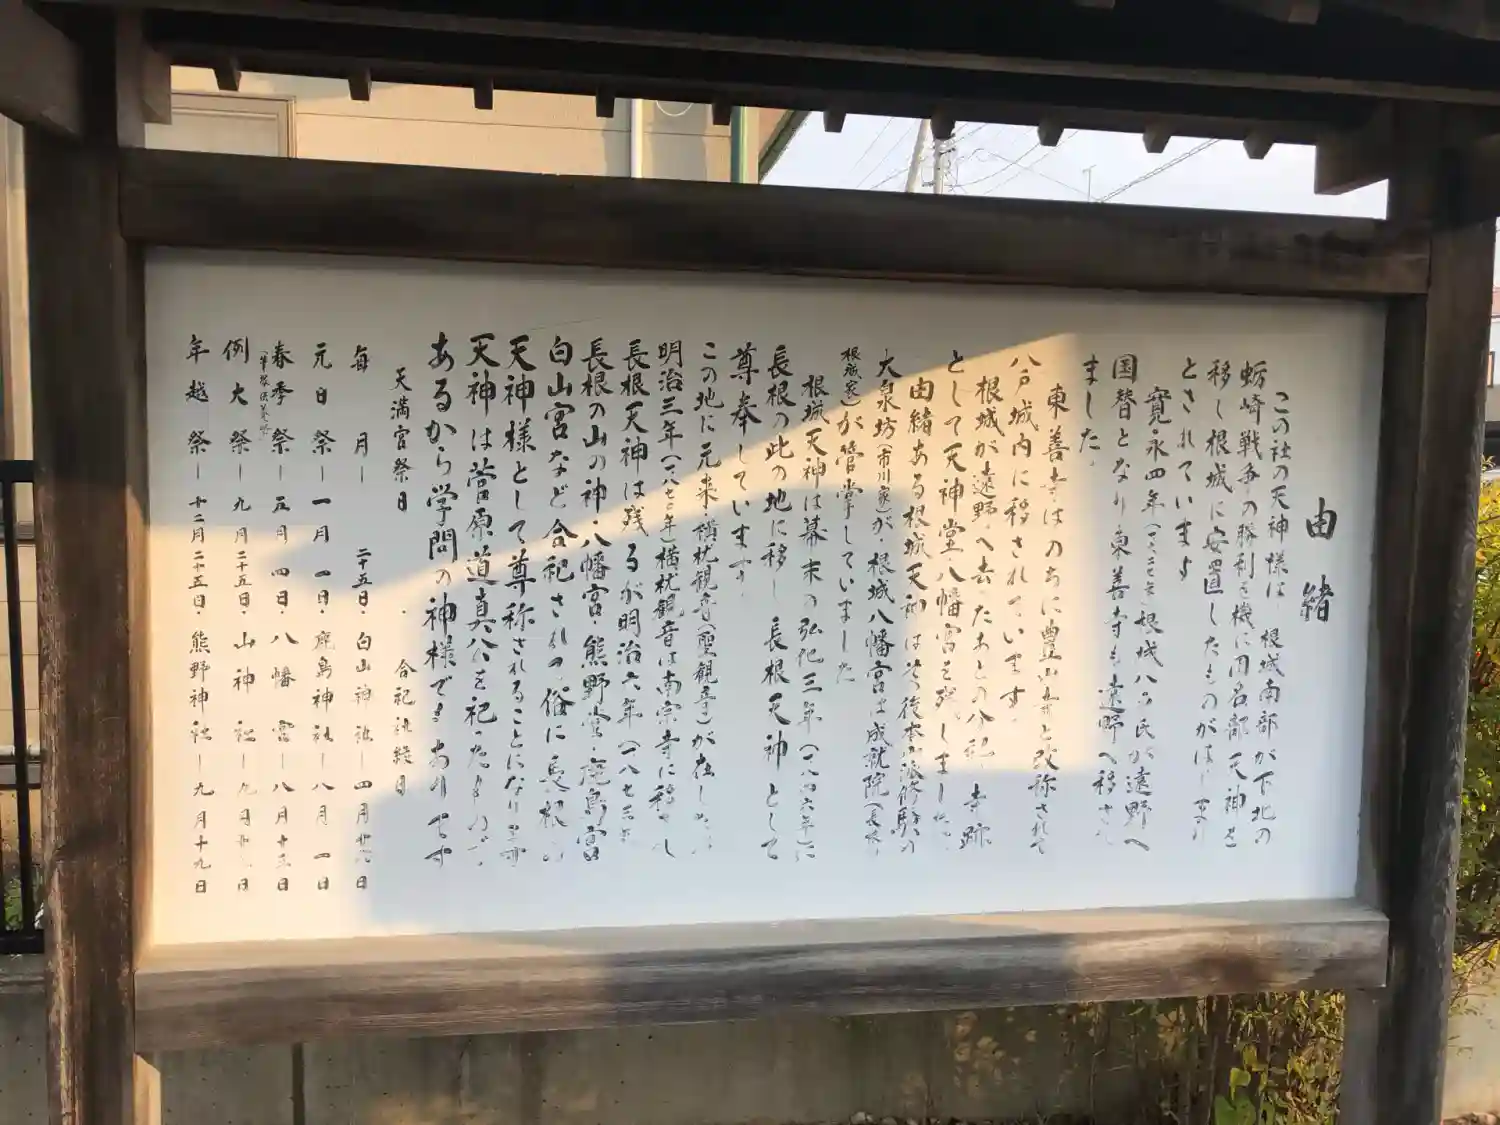 由緒
この社の天神様は、根城南部が下北の
蛎崎戦争の勝利を機に田名部天神を
移し根城に安置したものがはじまり
とされています
寛永四年(一六二七年)根城八戸氏が遠野へ
国替となり東善寺も遠野へ移され
ました。
東善寺はのちに豊山寺と改称されて
八戸城内に移されています。
根城が遠野へ去ったあとの八幡、寺跡
として天神堂、八幡宮を残しました。
由緒ある根城天神は其の後本山派修験の
大泉坊(市川家)が、根城八幡宮は成就院(長谷
根城家)が管掌していました
根城天神は幕末の弘化三年(一八四六年)に
長根の此の地に移し長根天神として
尊奉しています。
この地に元来、横枕観音(聖観音)が在したが
明治三年(一八七〇年)横枕観音は南宗寺に移転し
長根天神は残るが明治六年(一八七三年)
長根の山の神・八幡宮・熊野堂・鹿島宮
白山宮など合祀され、俗に長根の
天神様として尊称されることになります
天神は菅原道真公を祀ったもので、
あるから学問の神様でもあります
天満宮祭日 ・合祀社縁日
毎月―二十五日・白山神社―四月廿八日
元日祭―一月一日・鹿島神社―八月一日
春季祭―五月四日、八幡宮―八月十三日
例大祭―九月二十五日、山神社―九月廿八日
年越祭―十二月二十五日・熊野神社―九月十九日